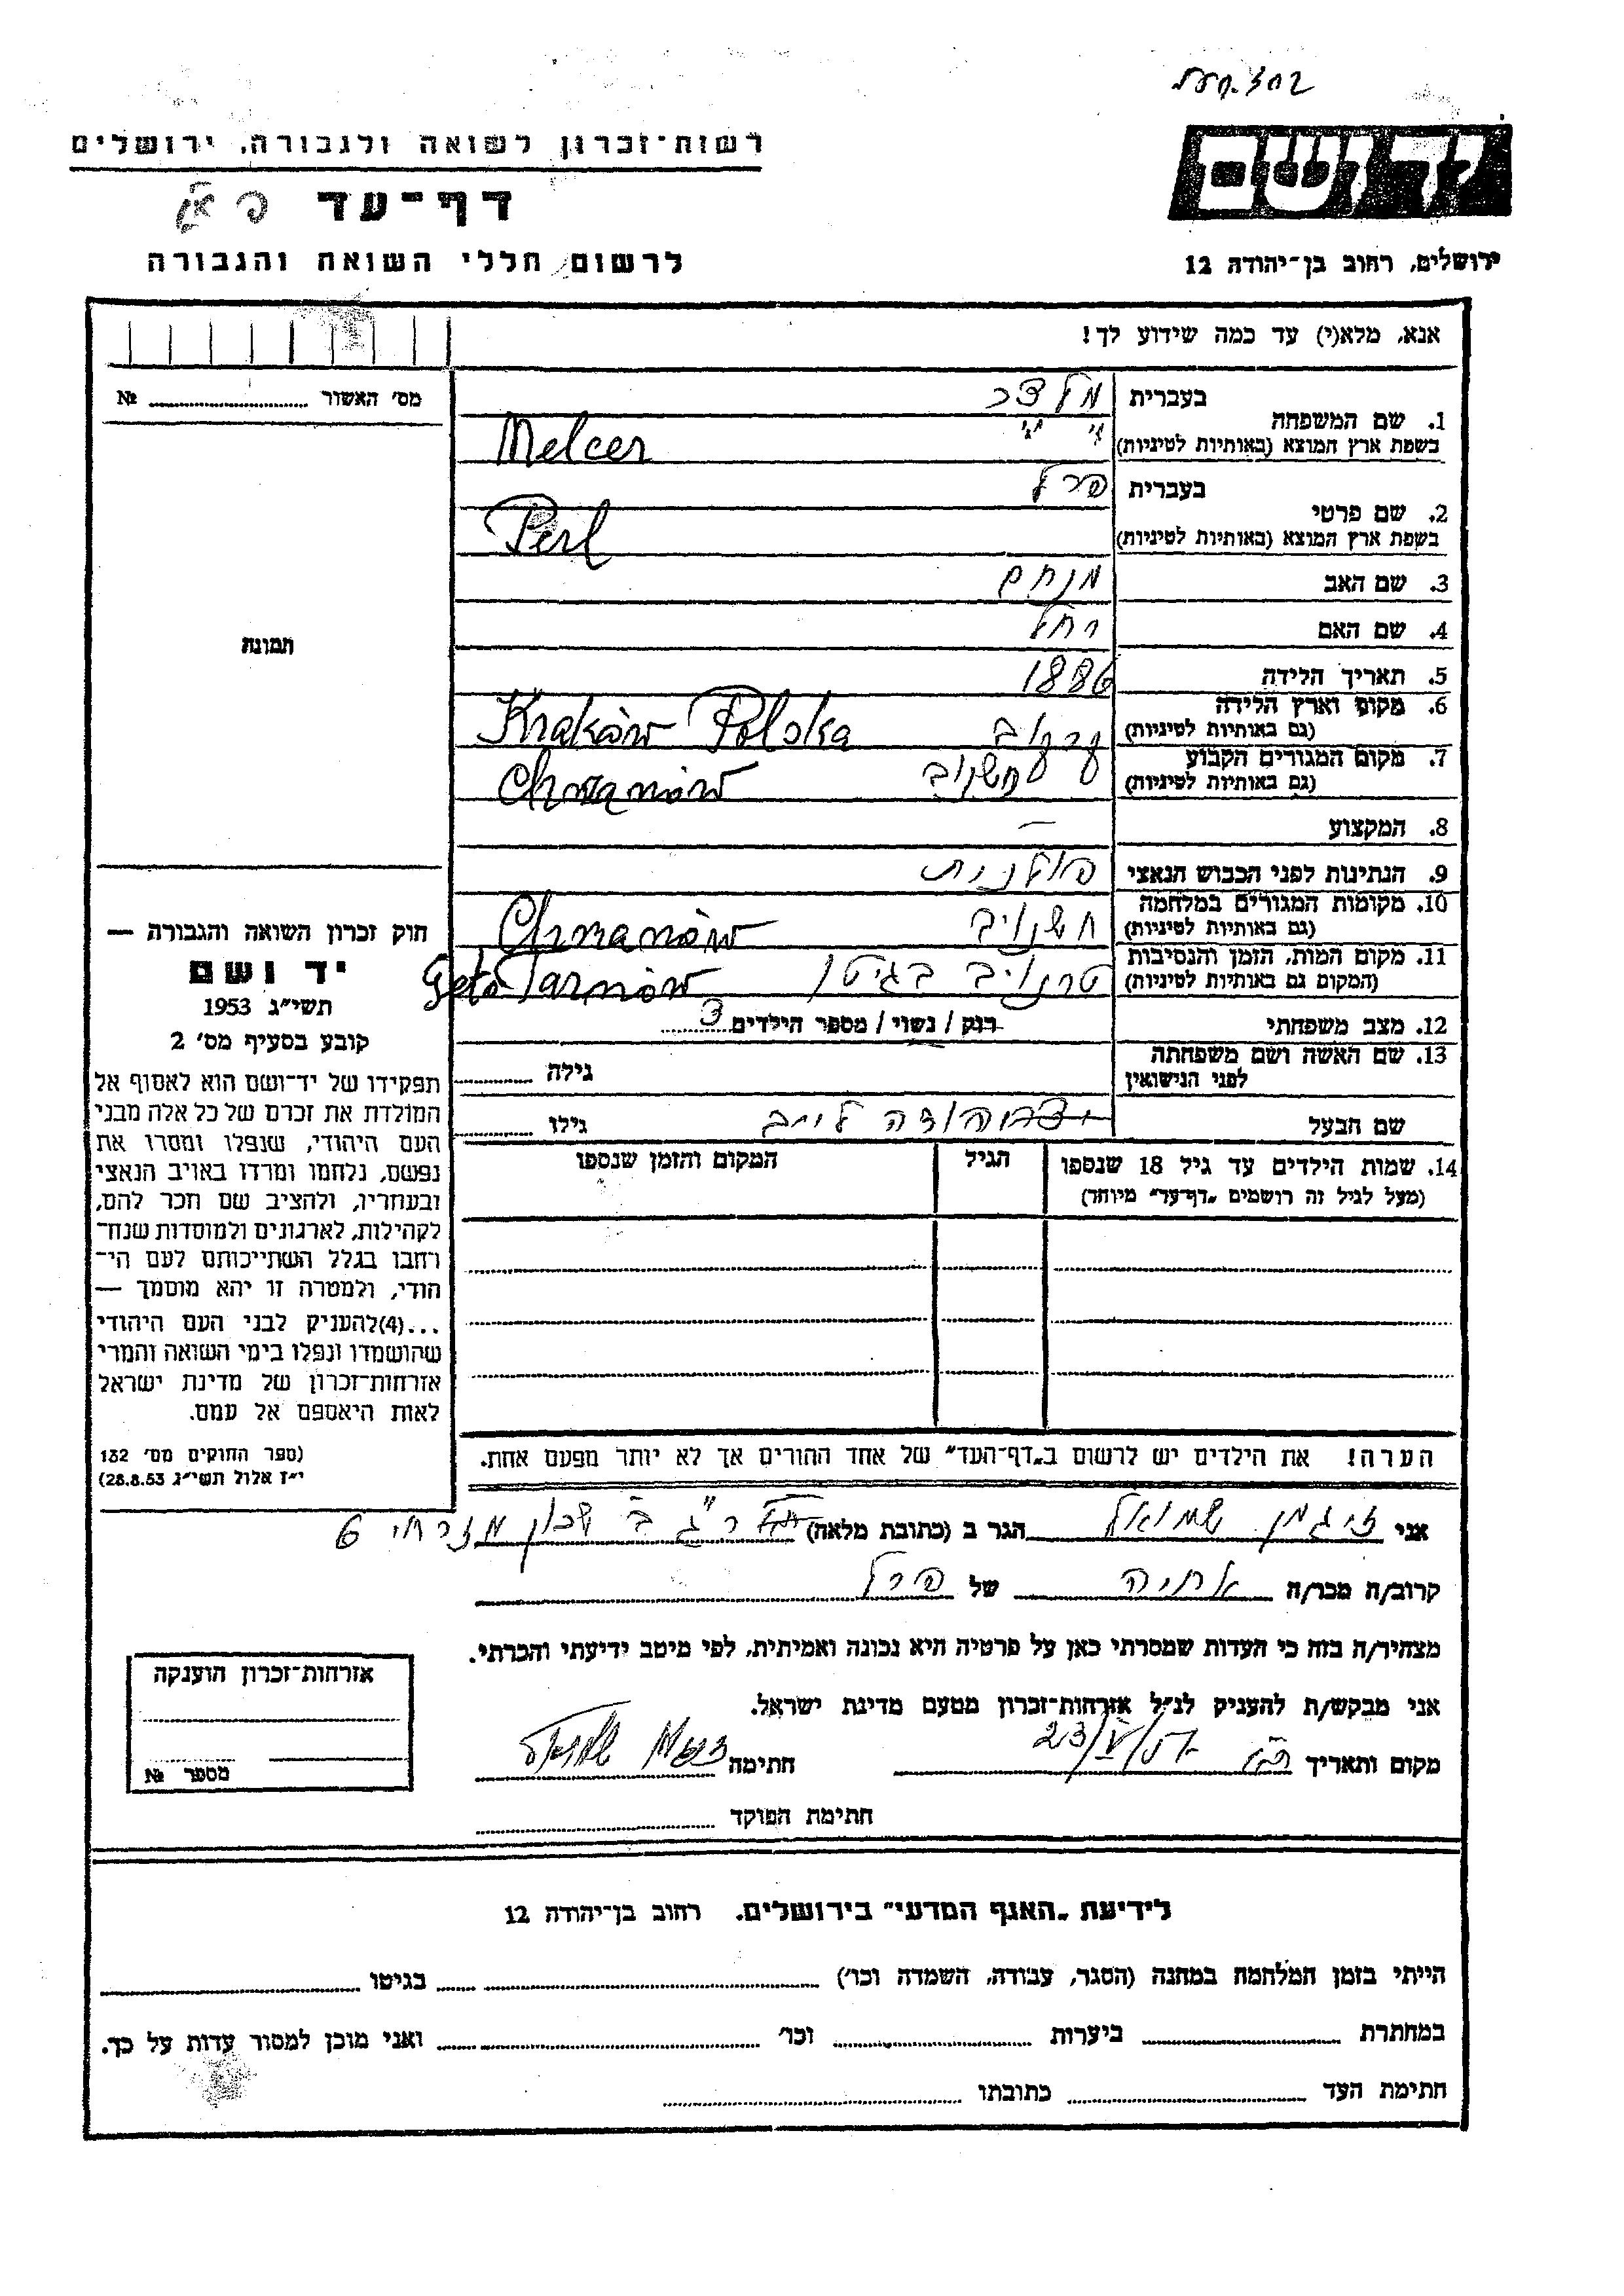 רשות־זכרון לשואה ולגבורה, ירושלים
יד ושם
דף־עד
ירושלים, רחוב בן־יהודה 12
לרשום חללי השואה והגבורה
אנא, מלא(י) עד כמה שידוע לך!
מס' האשור № 
תמונה
בעברית מלצר
1. שם המשפחה
בשפת ארץ המוצא (באותיות לטיניות) Melcer
בעברית פרל
2. שם פרטי
בשפת ארץ המוצא (באותיות לטיניות) Perl
3. שם האב מנחם
4. שם האם רחל
5. תאריך הלידה 1886
6. מקום וארץ הלידה
(גם באותיות לטיניות) Kraków Polska
7. מקום המגורים הקבוע
(גם באותיות לטיניות) Chrzanów
8. המקצוע —
9. הנתינות לפני הכבוש הנאצי פולנית
10. מקומות המגורים במלחמה
(גם באותיות לטיניות) חשנויב Chrzanów
11. מקום המות, הזמן והנסיבות
(המקום גם באותיות לטיניות) טרנויב בגיטו Geto Tarnów
12. מצב משפחתי רווק / נשוי / מספר הילדים 3
13. שם האשה ושם משפחתה
לפני הנישואין גילה
שם הבעל יהודה לייב גילו
14. שמות הילדים עד גיל 18 שנספו הגיל המקום והזמן שנספו
(מעל לגיל זה רושמים „דף־עד” מיוחד)
הערה! את הילדים יש לרשום ב„דף־העד” של אחד ההורים אך לא יותר מפעם אחת.
חוק זכרון השואה והגבורה —
יד ושם
תשי״ג 1953
קובע בסעיף מס' 2
תפקידו של יד־ושם הוא לאסוף אל
המולדת את זכרם של כל אלה מבני
העם היהודי, שנפלו ומסרו את
נפשם, נלחמו ומרדו באויב הנאצי
ובעוזריו, ולהציב שם וזכר להם,
לקהילות, לארגונים ולמוסדות שנח־
רבו בגלל השתייכותם לעם הי־
הודי, ולמטרה זו יהא מוסמך —
...(4)להעניק לבני העם היהודי
שהושמדו ונפלו בימי השואה והמרי
אזרחות־זכרון של מדינת ישראל
לאות היאספם אל עמם.
(ספר החוקים מס' 132
י״ז אלול תשי״ג 28.8.53)
אני זיגמן שמואל הגר ב (כתובת מלאה) ר"ג ב' שכון מזרחי 6
קרוב/ה מכר/ה אחיה של פרל
מצהיר/ה בזה כי העדות שמסרתי כאן על פרטיה היא נכונה ואמיתית, לפי מיטב ידיעתי והכרתי.
אני מבקש/ת להעניק לנ״ל אזרחות־זכרון מטעם מדינת ישראל.
מקום ותאריך 23/V/ חתימה זיגמן שמואל
חתימת הפוקד
אזרחות־זכרון הוענקה
מספר №
לידיעת „האגף המדעי” בירושלים. רחוב בן־יהודה 12
הייתי בזמן המלחמה במחנה (הסגר, עבודה, השמדה וכו') בגיטו
במחתרת ביערות וכו' ואני מוכן למסור עדות על כך.
חתימת העד כתובתו